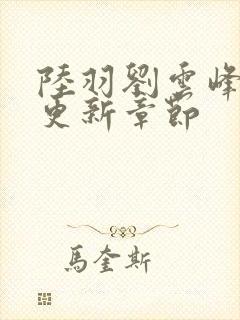 陸羽劉雲峰
更新章節
馬奎斯